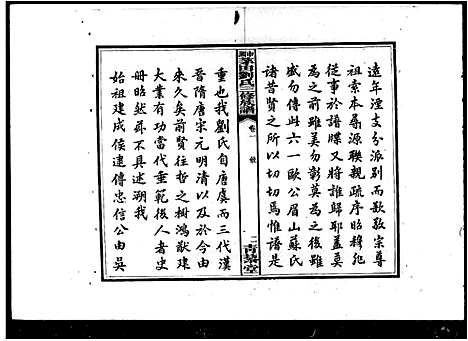 遠年湮支分派別而歎敦宗尊
祖索本尋源聯親疏序昭穆苟
從事於譜牒又將誰歸耶蓋莫
為之前雖美勿彰莫為之後雖
盛勿傳此六一歐公眉山蘇氏
諸昔賢之所以切切焉惟譜是
茅田劉氏三修族譜
卷一
二
青藜堂
重也我劉氏自唐虞而三代漢
晉隋唐宋元明清以及於今由
來久矣前賢往哲之樹鴻猷建
大業有功當代垂範後人者史
冊昭然茲不具述溯我
始祖建成侯逵傳忠信公由吳